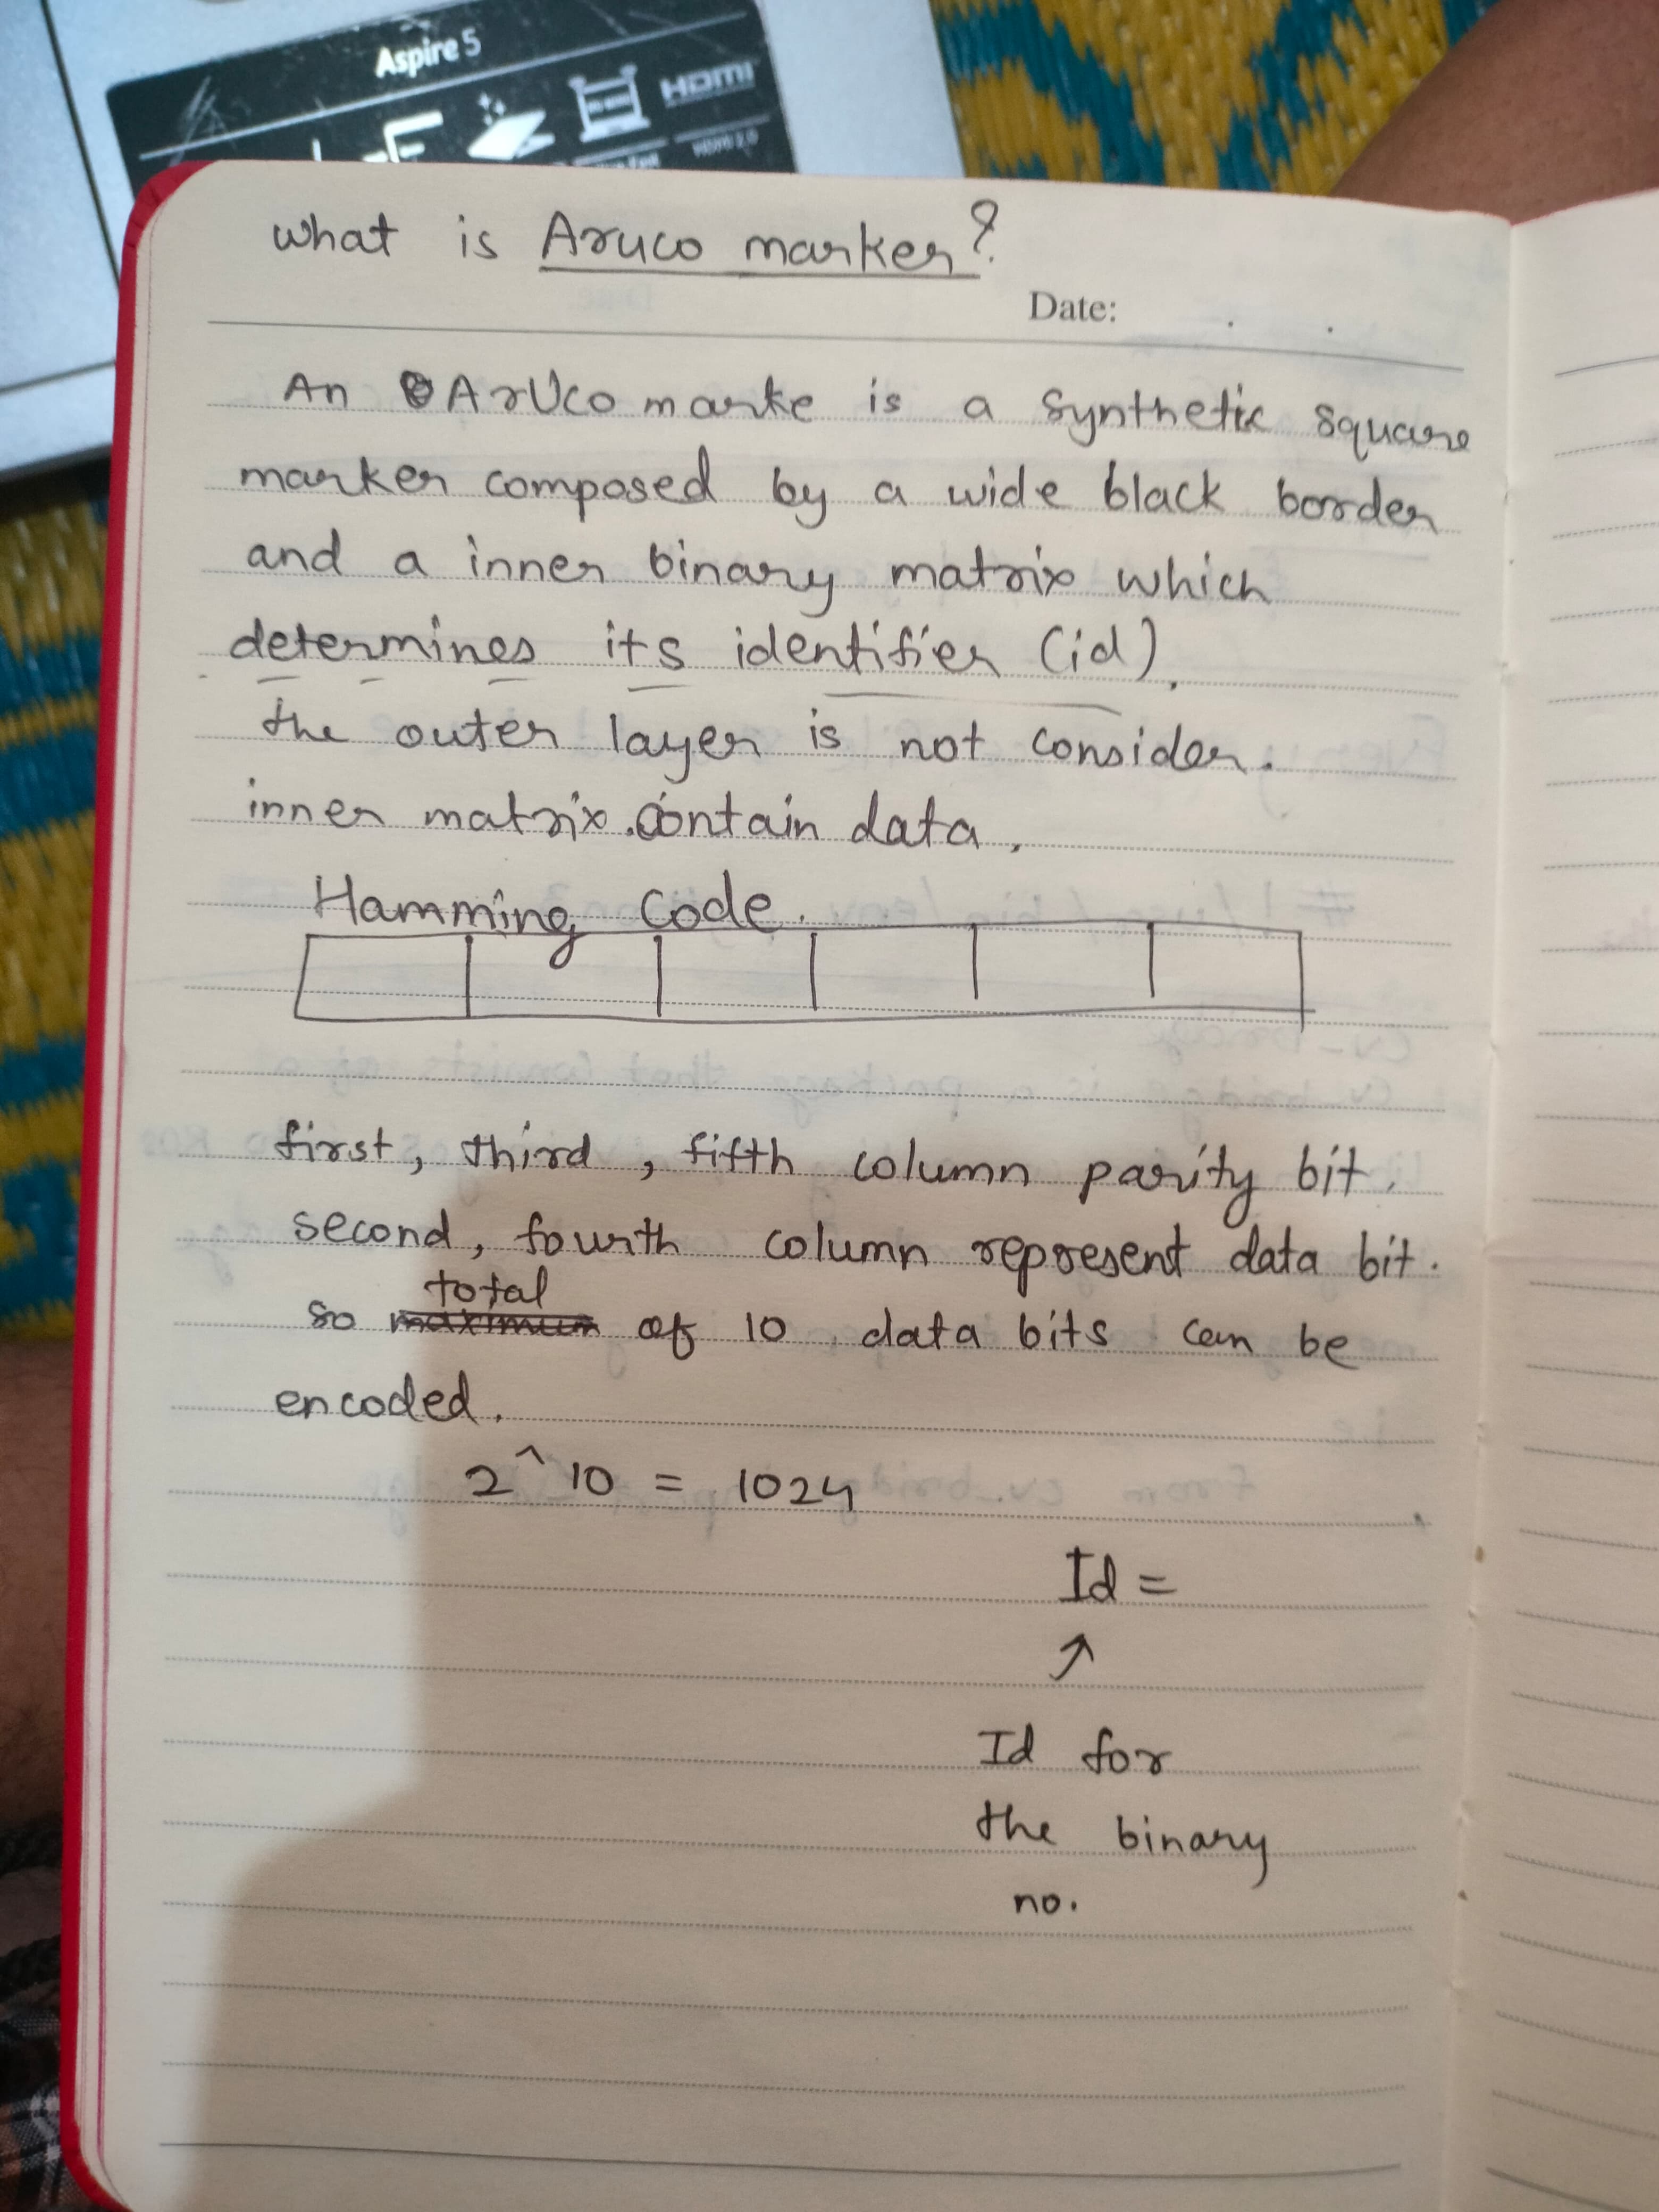 Aspire 5
HDMI
HDMI 2.0
What is Aruco marker?
Date:
An ArUco marke is a synthetic square
marker composed by a wide black border
and a inner binary matrix which
determines its identifier (id).
the outer layer is not consider.
inner matrix contain data.
Hamming Code.
first, third, fifth column parity bit.
second, fourth column represent data bit.
total
so maximum of 10 data bits can be
encoded.
2^10 = 1024
Id =
↑
Id for
the binary
no.